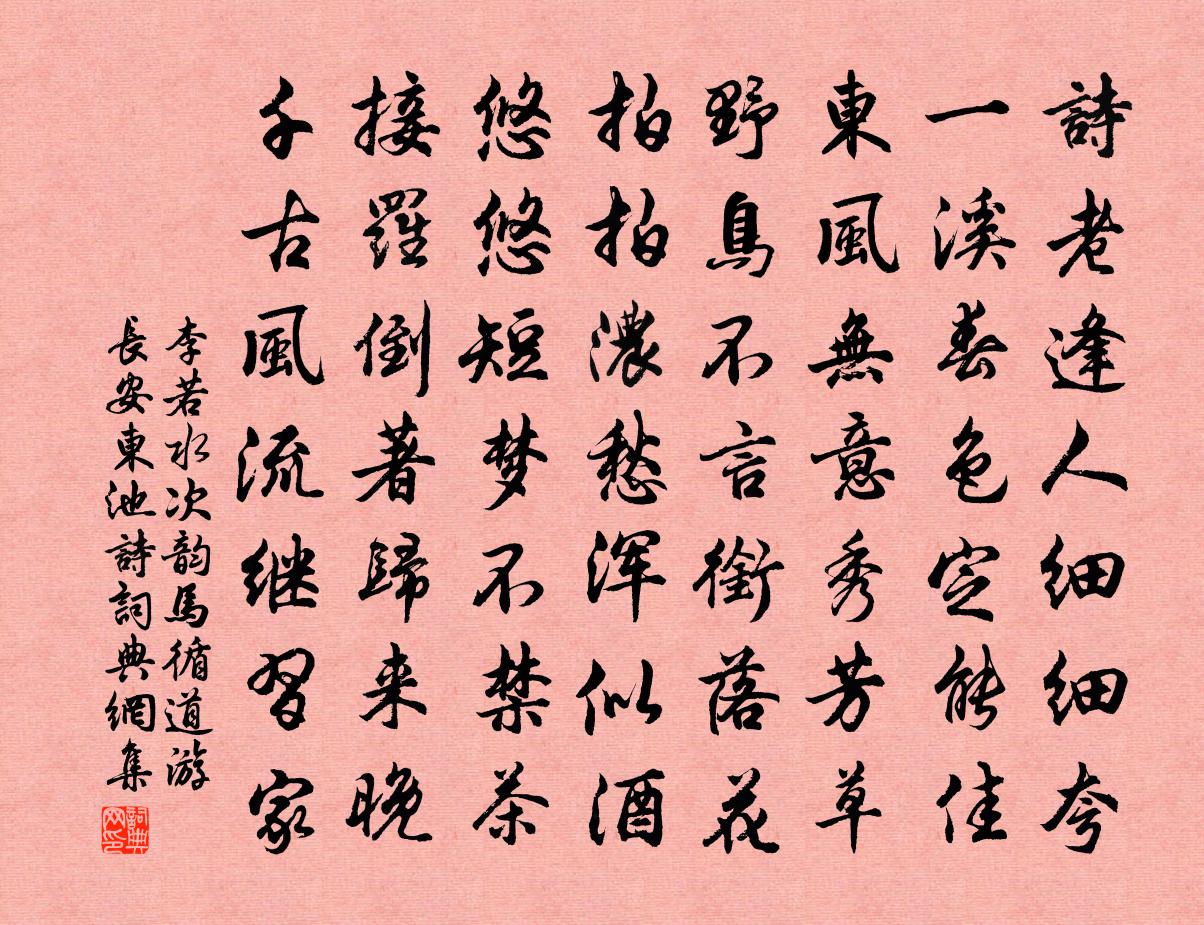 詩老逢人細細夸
一溪春色定能佳
東風無意秀芳草
野鳥不言銜落花
拍拍濃愁浑似酒
悠悠短梦不禁茶
接羅倒著歸来晚
千古風流继習家
李若水次韵馬循道游
長安東池詩詞典網集
詞典网印